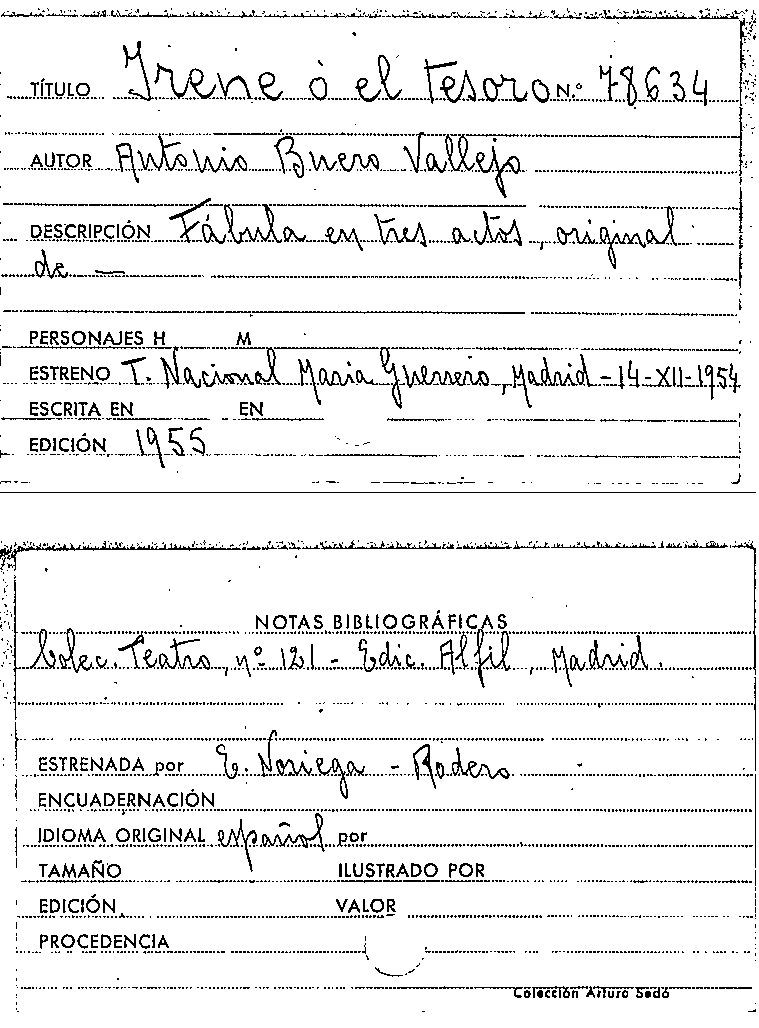 TÍTULO Irene ó el tesoro N.º 78634
AUTOR Antonio Buero Vallejo
DESCRIPCIÓN Fábula en tres actos, original
de —
PERSONAJES H M
ESTRENO T. Nacional Maria Guerrero, Madrid - 14 - XII - 1954
ESCRITA EN EN
EDICIÓN 1955
NOTAS BIBLIOGRÁFICAS
Colec. Teatro, nº 121 - Edic. Alfil, Madrid.
ESTRENADA por E. Noriega - Rodero
ENCUADERNACIÓN
IDIOMA ORIGINAL español por
TAMAÑO ILUSTRADO POR
EDICIÓN VALOR
PROCEDENCIA
Colección Arturo Sedó